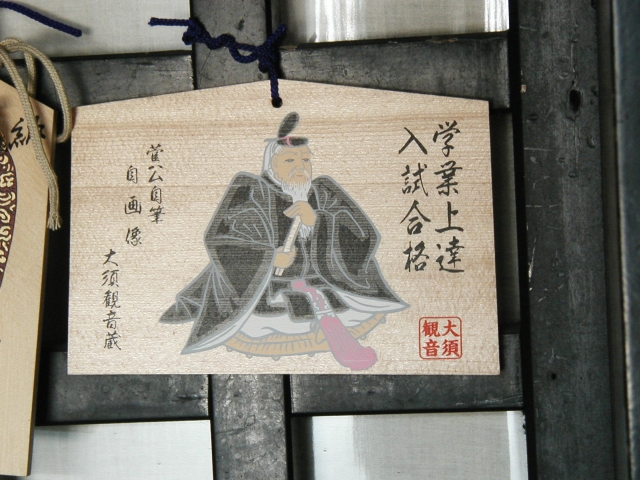 学業上達
入試合格
菅公自筆
自画像
大須観音蔵
大須
観音